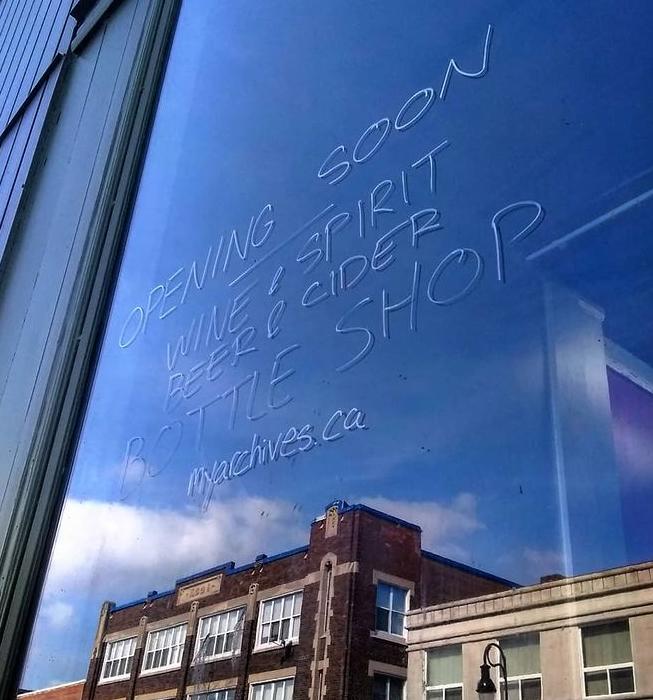 OPENING SOON
WINE & SPIRIT
BEER & CIDER
BOTTLE SHOP
myarchives.ca